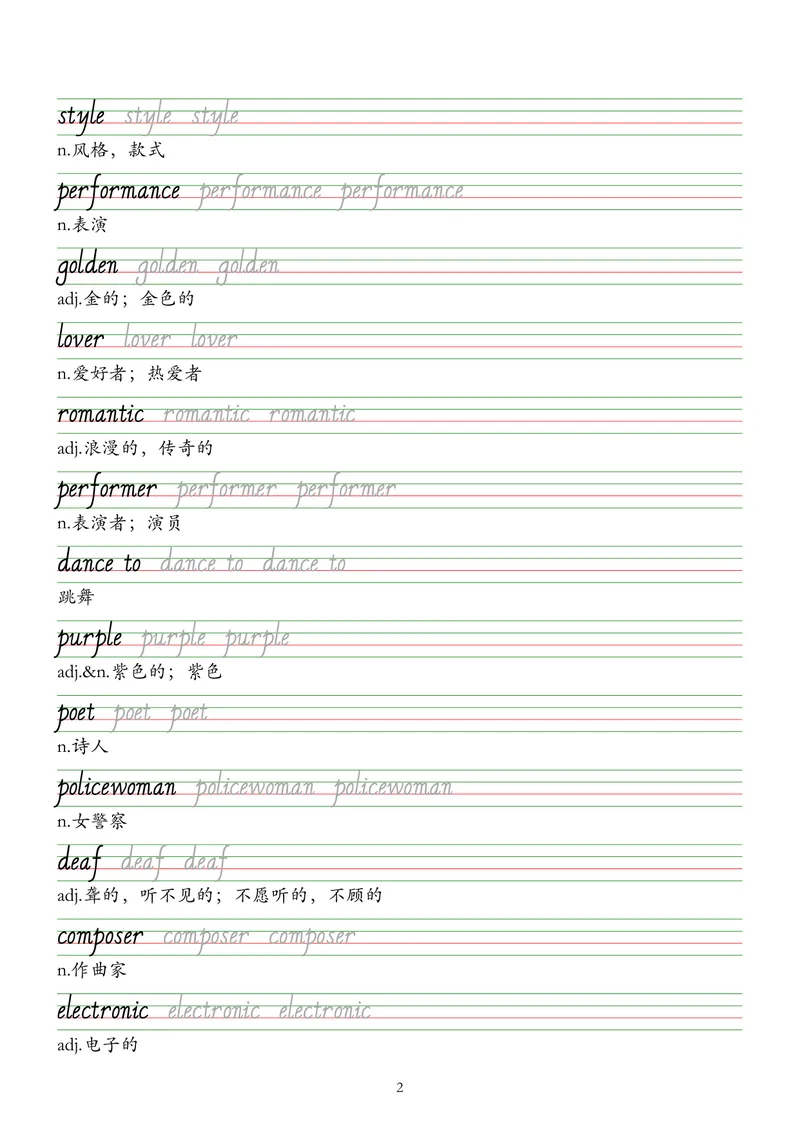 style style style
n.风格，款式
performance performance performance
n.表演
golden golden golden
adj.金的；金色的
lover lover lover
n.爱好者；热爱者
romantic romantic romantic
adj.浪漫的，传奇的
performer performer performer
n.表演者；演员
dance to dance to dance to
跳舞
purple purple purple
adj.&n.紫色的；紫色
poet poet poet
n.诗人
policewoman policewoman policewoman
n.女警察
deaf deaf deaf
adj.聋的，听不见的；不愿听的，不顾的
composer composer composer
n.作曲家
electronic electronic electronic
adj.电子的
2